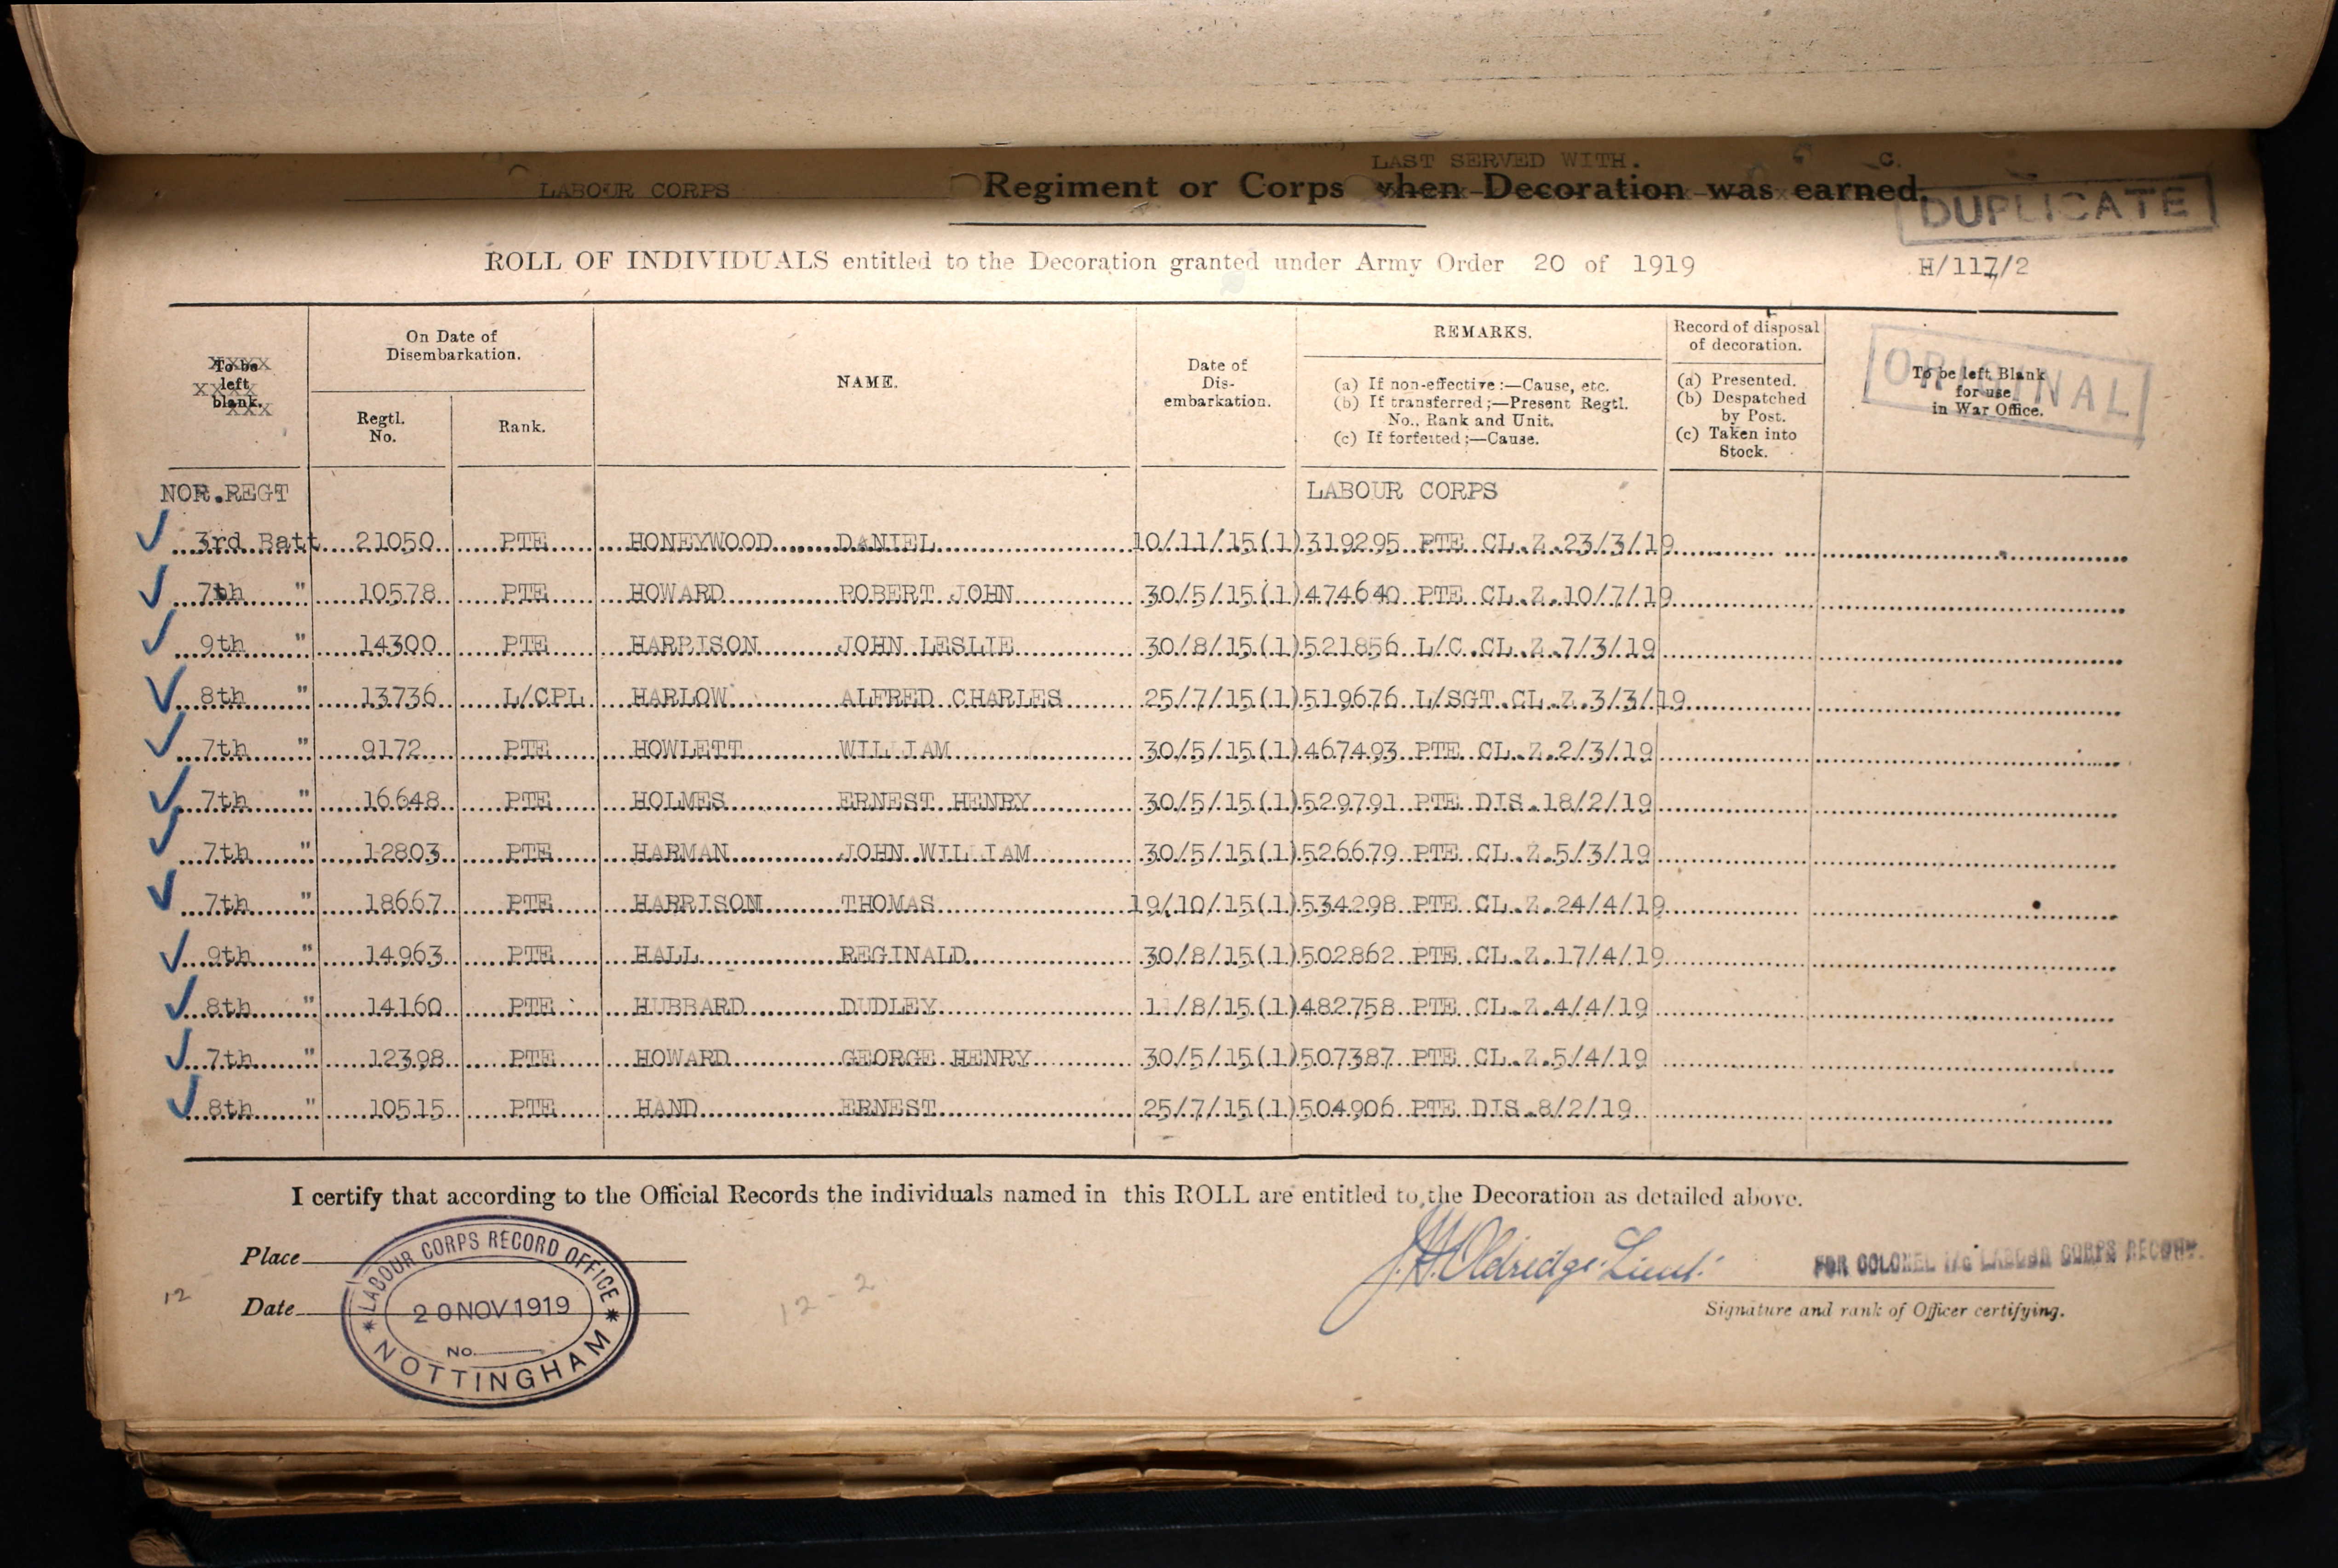 LAST SERVED WITH. C.
LABOUR CORPS Regiment or Corps when Decoration was earned.
DUPLICATE
ROLL OF INDIVIDUALS entitled to the Decoration granted under Army Order 20 of 1919 H/117/2
ORIGINAL
To be left blank.
On Date of Disembarkation.
Regtl. No.
Rank.
NAME.
Date of Dis-embarkation.
REMARKS.
(a) If non-effective:—Cause, etc.
(b) If transferred;—Present Regtl. No., Rank and Unit.
(c) If forfeited;—Cause.
Record of disposal of decoration.
(a) Presented.
(b) Despatched by Post.
(c) Taken into Stock.
To be left Blank for use in War Office.
NOR.REGT LABOUR CORPS
3rd Batt 21050 PTE HONEYWOOD DANIEL 10/11/15(1) 319295 PTE CL.Z.23/3/19
7th " 10578 PTE HOWARD ROBERT JOHN 30/5/15(1) 474640 PTE CL.Z.10/7/19
9th " 14300 PTE HARRISON JOHN LESLIE 30/8/15(1) 521856 L/C.CL.Z.7/3/19
8th " 13736 L/CPL HARLOW ALFRED CHARLES 25/7/15(1) 519676 L/SGT.CL.Z.3/3/19
7th " 9172 PTE HOWLETT WILLIAM 30/5/15(1) 467493 PTE CL.Z.2/3/19
7th " 16648 PTE HOLMES ERNEST HENRY 30/5/15(1) 529791 PTE DIS.18/2/19
7th " 12803 PTE HARMAN JOHN WILLIAM 30/5/15(1) 526679 PTE CL.Z.5/3/19
7th " 18667 PTE HARRISON THOMAS 19/10/15(1) 534298 PTE CL.Z.24/4/19
9th " 14963 PTE HALL REGINALD 30/8/15(1) 502862 PTE CL.Z.17/4/19
8th " 14160 PTE HUBBARD DUDLEY 11/8/15(1) 482758 PTE CL.Z.4/4/19
7th " 12398 PTE HOWARD GEORGE HENRY 30/5/15(1) 507387 PTE CL.Z.5/4/19
8th " 10515 PTE HAND ERNEST 25/7/15(1) 504906 PTE DIS.8/2/19
I certify that according to the Official Records the individuals named in this ROLL are entitled to the Decoration as detailed above.
Place
LABOUR CORPS RECORD OFFICE
J.H. Oldredge. Lieut. FOR COLONEL I/c LABOUR CORPS RECORD
12 Date 20 NOV 1919 12 - 2
Signature and rank of Officer certifying.
No.
NOTTINGHAM